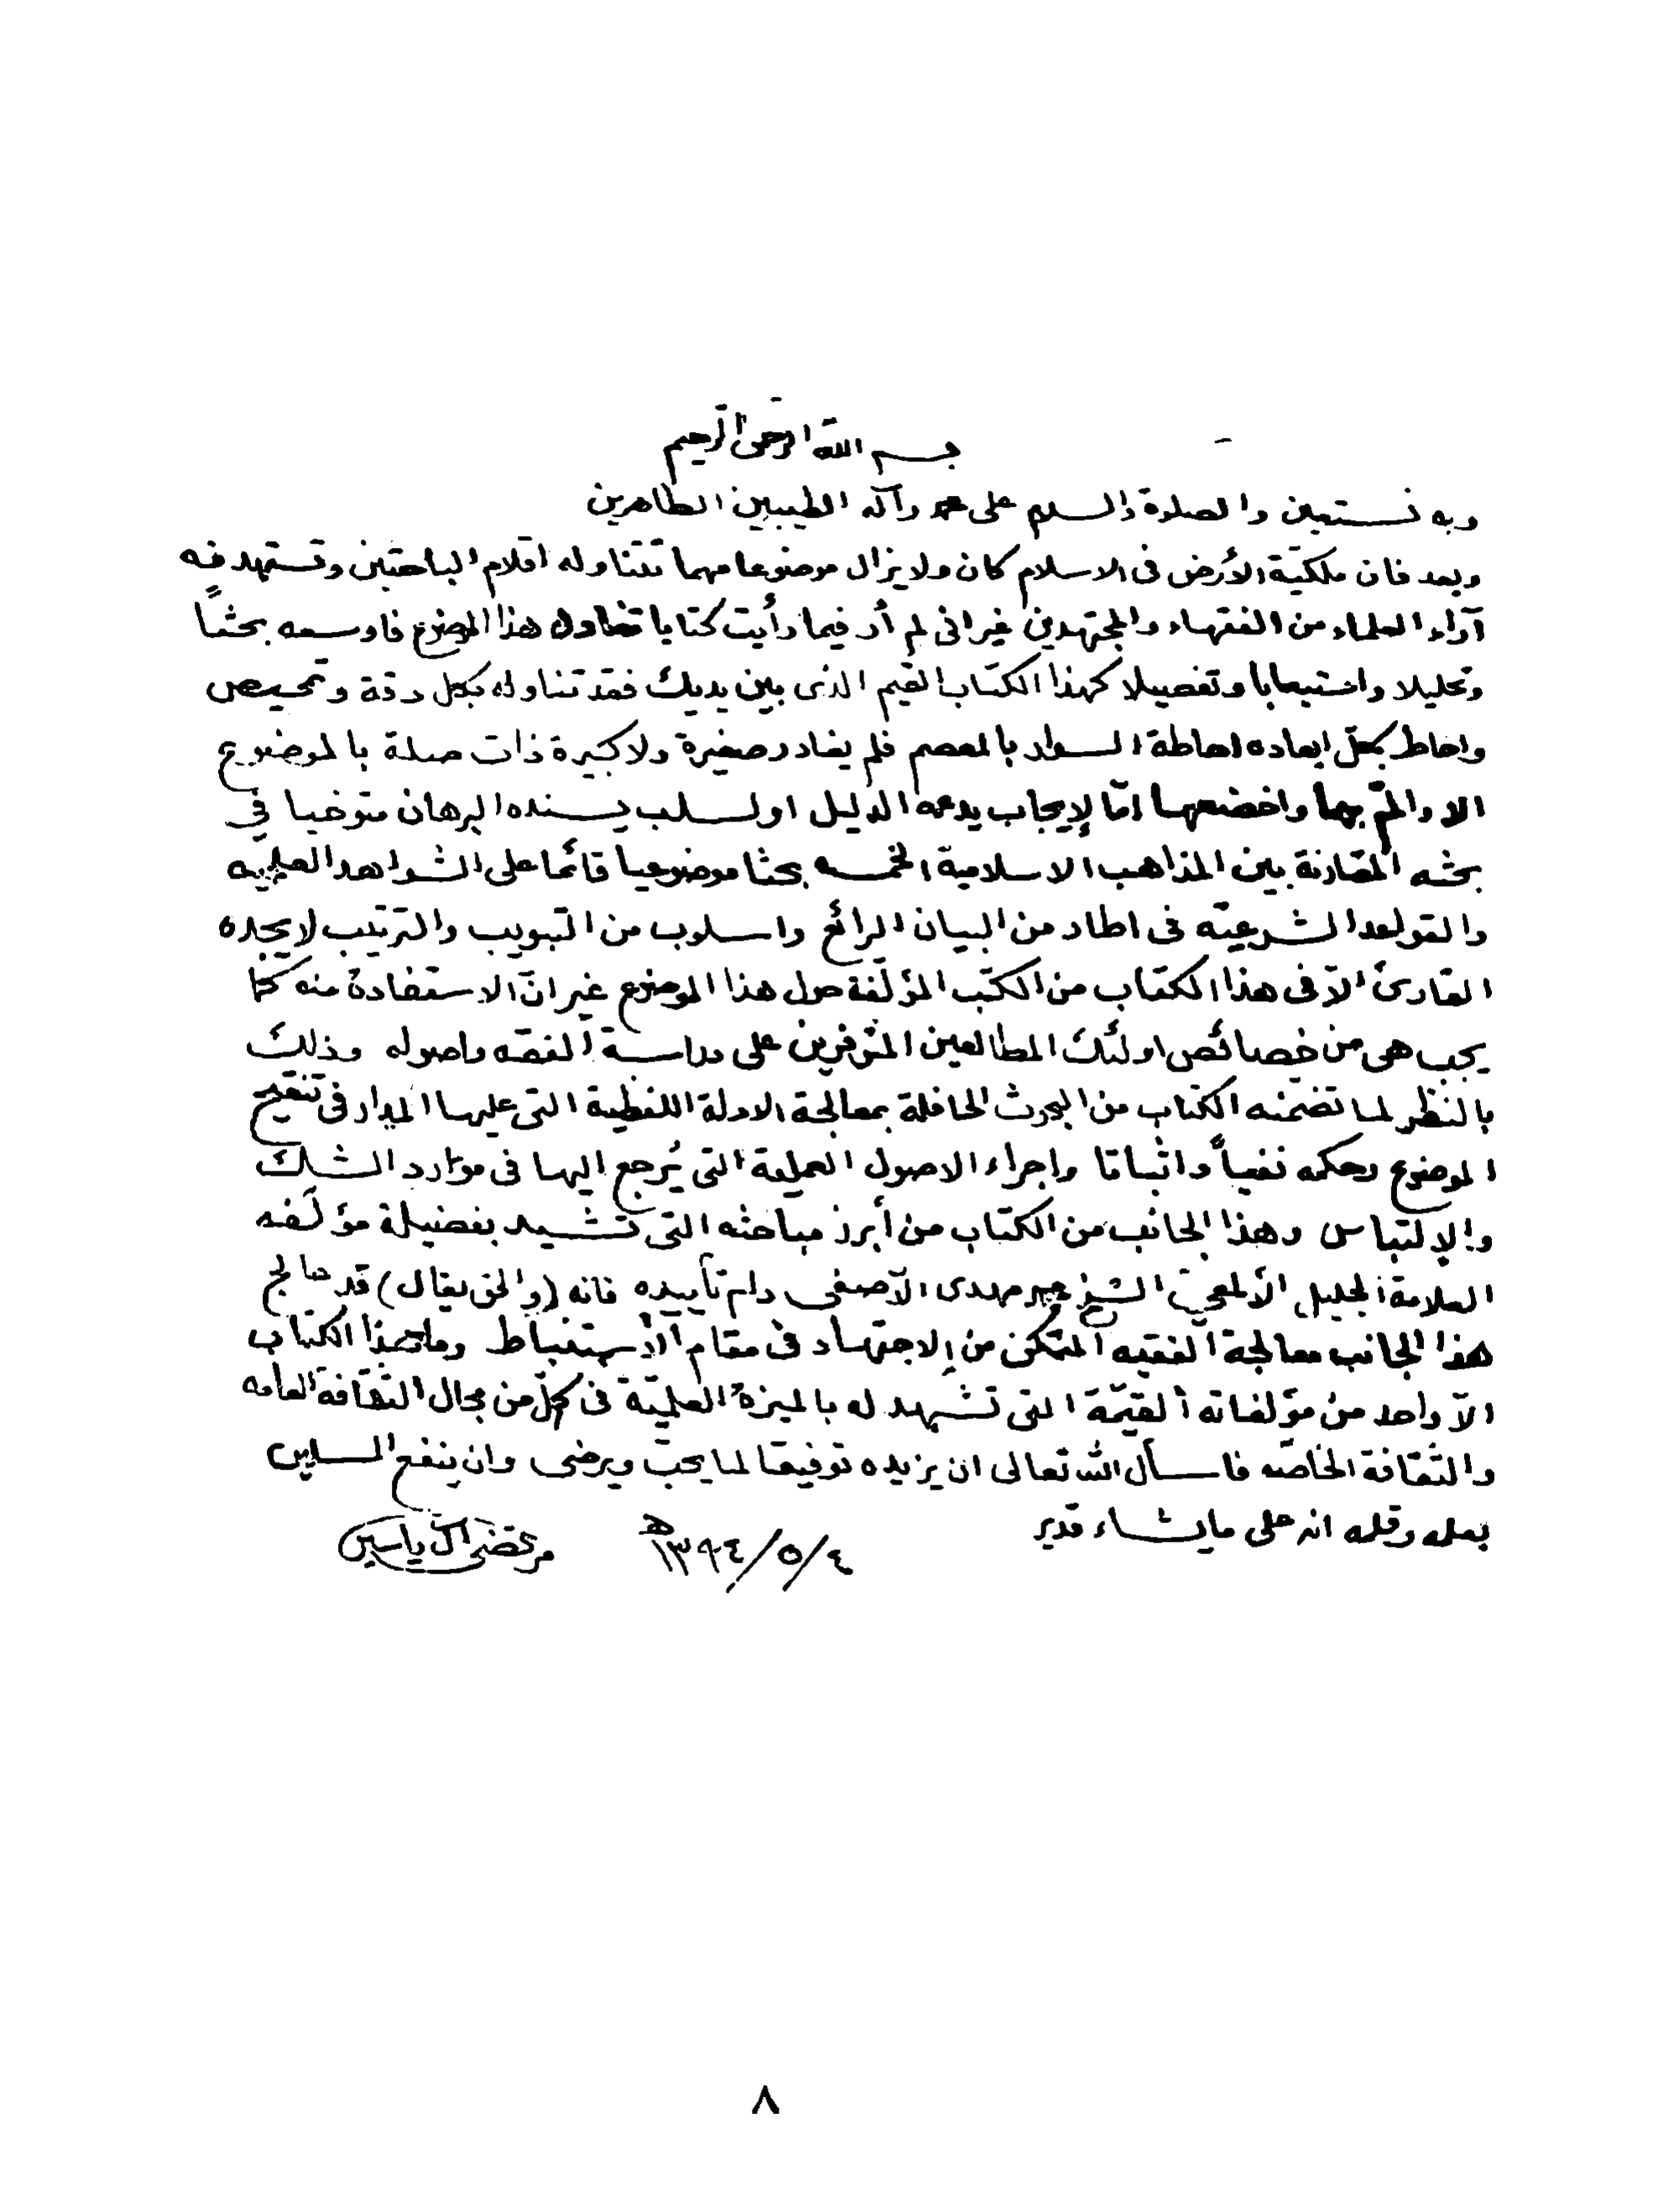 بسم الله الرحمن الرحيم
وبه نستعين والصلوة والسلم على محمد وآله الطيبين الطاهرين
وبعد فان ملكيّة الأرض فى الاسلام كان ولا يزال موضوعا مهما تتناوله اقلام الباحثين وتستهدفه
آراء العلماء من الفقهاء والمجتهدين غير انى لم أر فيما رأيت كتابا تناول هذا الموضوع فاوسعه بحثاً
وتحليلا واستيعابا وتفصيلا كهذا الكتاب القيم الذى بين يديك فقد تناوله بكل دقة وتمحيص
واحاط بكلّ ابعاده احاطة السوار بالمعصم فلم يغادر صغيرة ولا كبيرة ذات صلة بالموضوع
الا والمّ بها واخضعها امّا لإيجاب يدعمه الدليل او لسلب يسنده البرهان متوخيا في
بحثه المقارنة بين المذاهب الاسلامية الخمسه بحثا موضوعيا قائما على الشواهد العلميه
والقواعد الشرعيّه فى اطار من البيان الرائع واسلوب من التبويب والترتيب لا يجده
القارئ الاّ فى هذا الكتاب من الكتب المؤلّفة حول هذا الموضوع غير انّ الاستفادة منه كما
يجب هى من خصائص اولئك المطالعين المتوفرين على دراسة الفقه واصوله وذلك
بالنظر لما تضمنه الكتاب من البحوث الحافلة بمعالجة الادلة اللفظية التى عليها المدار فى تنقيح
الموضوع وحكمه نفياً واثباتا واجراء الاصول العملية التى يُرجع اليها فى موارد الشك
والإلتباس وهذا الجانب من الكتاب من أبرز مباحثه التى تشيد بفضيلة مؤلّفه
العلامة الجليل الألمعيّ الشيخ محمد مهدى الآصفى دام تأييده فانه (والحق يقال) قد عالج
هذا الجانب معالجة الفقيه المتمكن من الاجتهاد فى مقام الاستنباط وما هذا الكتاب
الاّ واحد من مؤلفاته القيّمة التى تشهد له بالميزة العلميّة فى كلّ من مجال الثقافة العامه
والثقافة الخاصّه فاسأل الله تعالى ان يزيده توفيقا لما يحب ويرضى وان ينفع المسلمين
بعلمه وقلمه انه على ما يشاء قدير
٤/٥/١٣٩٤هـ
مرتضى آل ياسين
٨